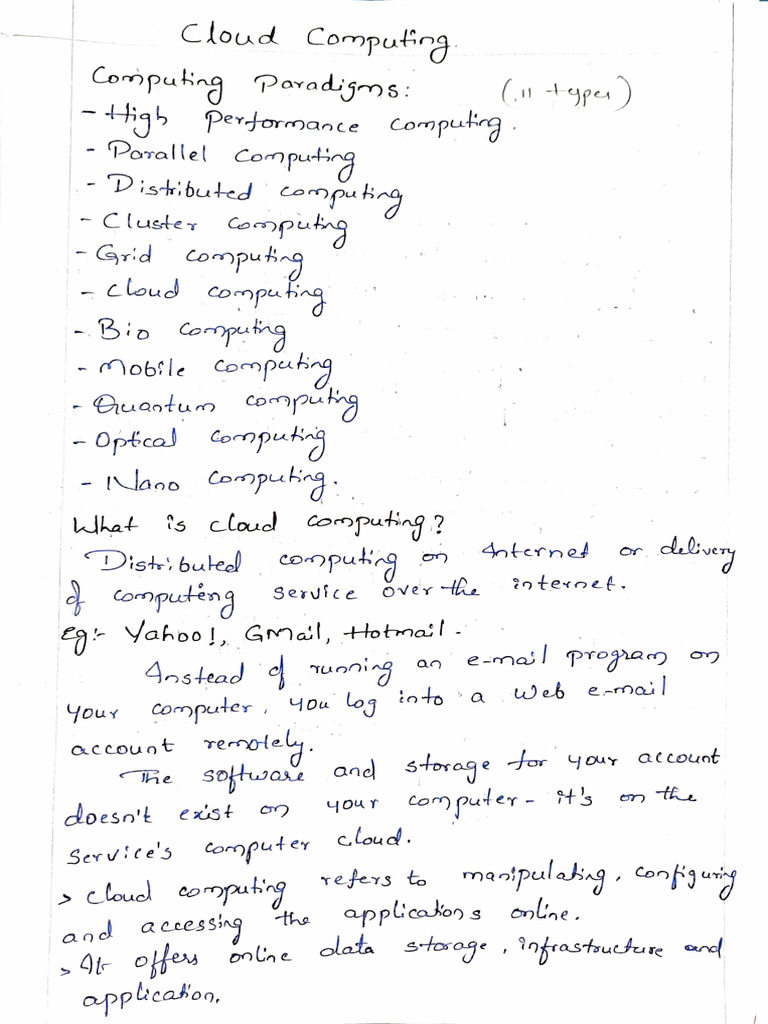 Cloud Computing.
Computing Paradigms: (11 types)
- High Performance computing.
- Parallel computing
- Distributed computing
- Cluster computing
- Grid computing
- Cloud computing
- Bio computing
- Mobile computing
- Quantum computing
- Optical computing
- Nano computing.
What is cloud computing?
Distributed computing on Internet or delivery
of computing service over the internet.
Eg:- Yahoo!, GMail, Hotmail.
Instead of running an e-mail program on
your computer, you log into a web e-mail
account remotely.
The software and storage for your account
doesn't exist on your computer - it's on the
service's computer cloud.
> Cloud computing refers to manipulating, configuring
and accessing the applications online.
> It offers online data storage, infrastructure and
application.